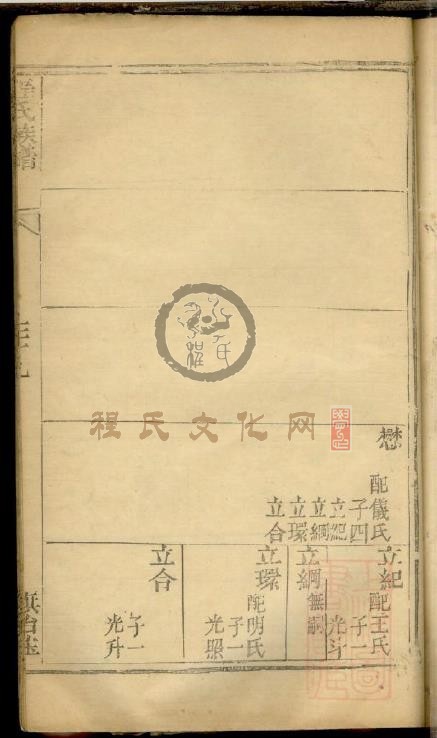 懋
配儀氏
子四
立紀
立綱
立環
立合
立紀
配王氏
子一
光斗
立綱
無嗣
立環
配明氏
子一
光照
立合
子一
光升
程氏族譜
程氏文化网
程氏